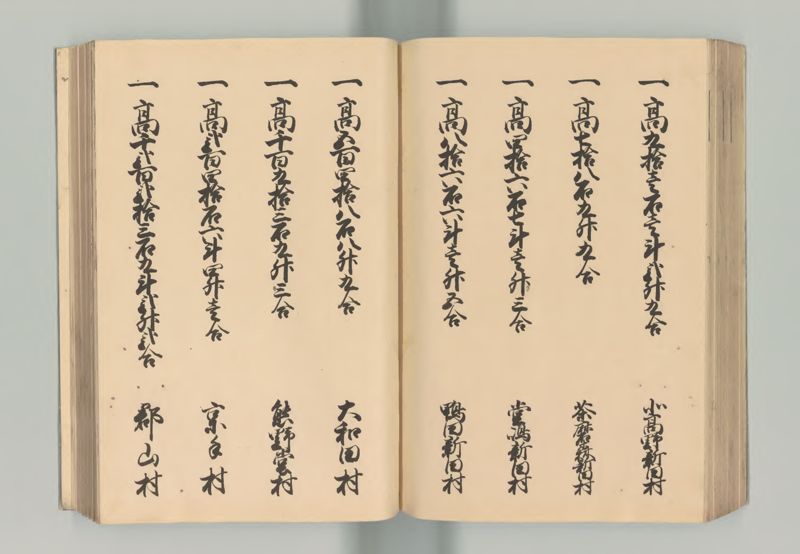 一高九拾壱石壱斗弐升九合 小高野新田村
一高七拾八石九升九合 茶磨森新田村
一高四拾六石七斗壱升三合 堂嶋新田村
一高八拾六石六斗壱升五合 鴨田新田村
一高五百四拾八石八升九合 大和田村
一高千百九拾三石九升三合 熊野堂村
一高弐百四拾石六斗四升壱合 京手村
一高千弐百弐拾三石九斗弐升弐合 郡山村